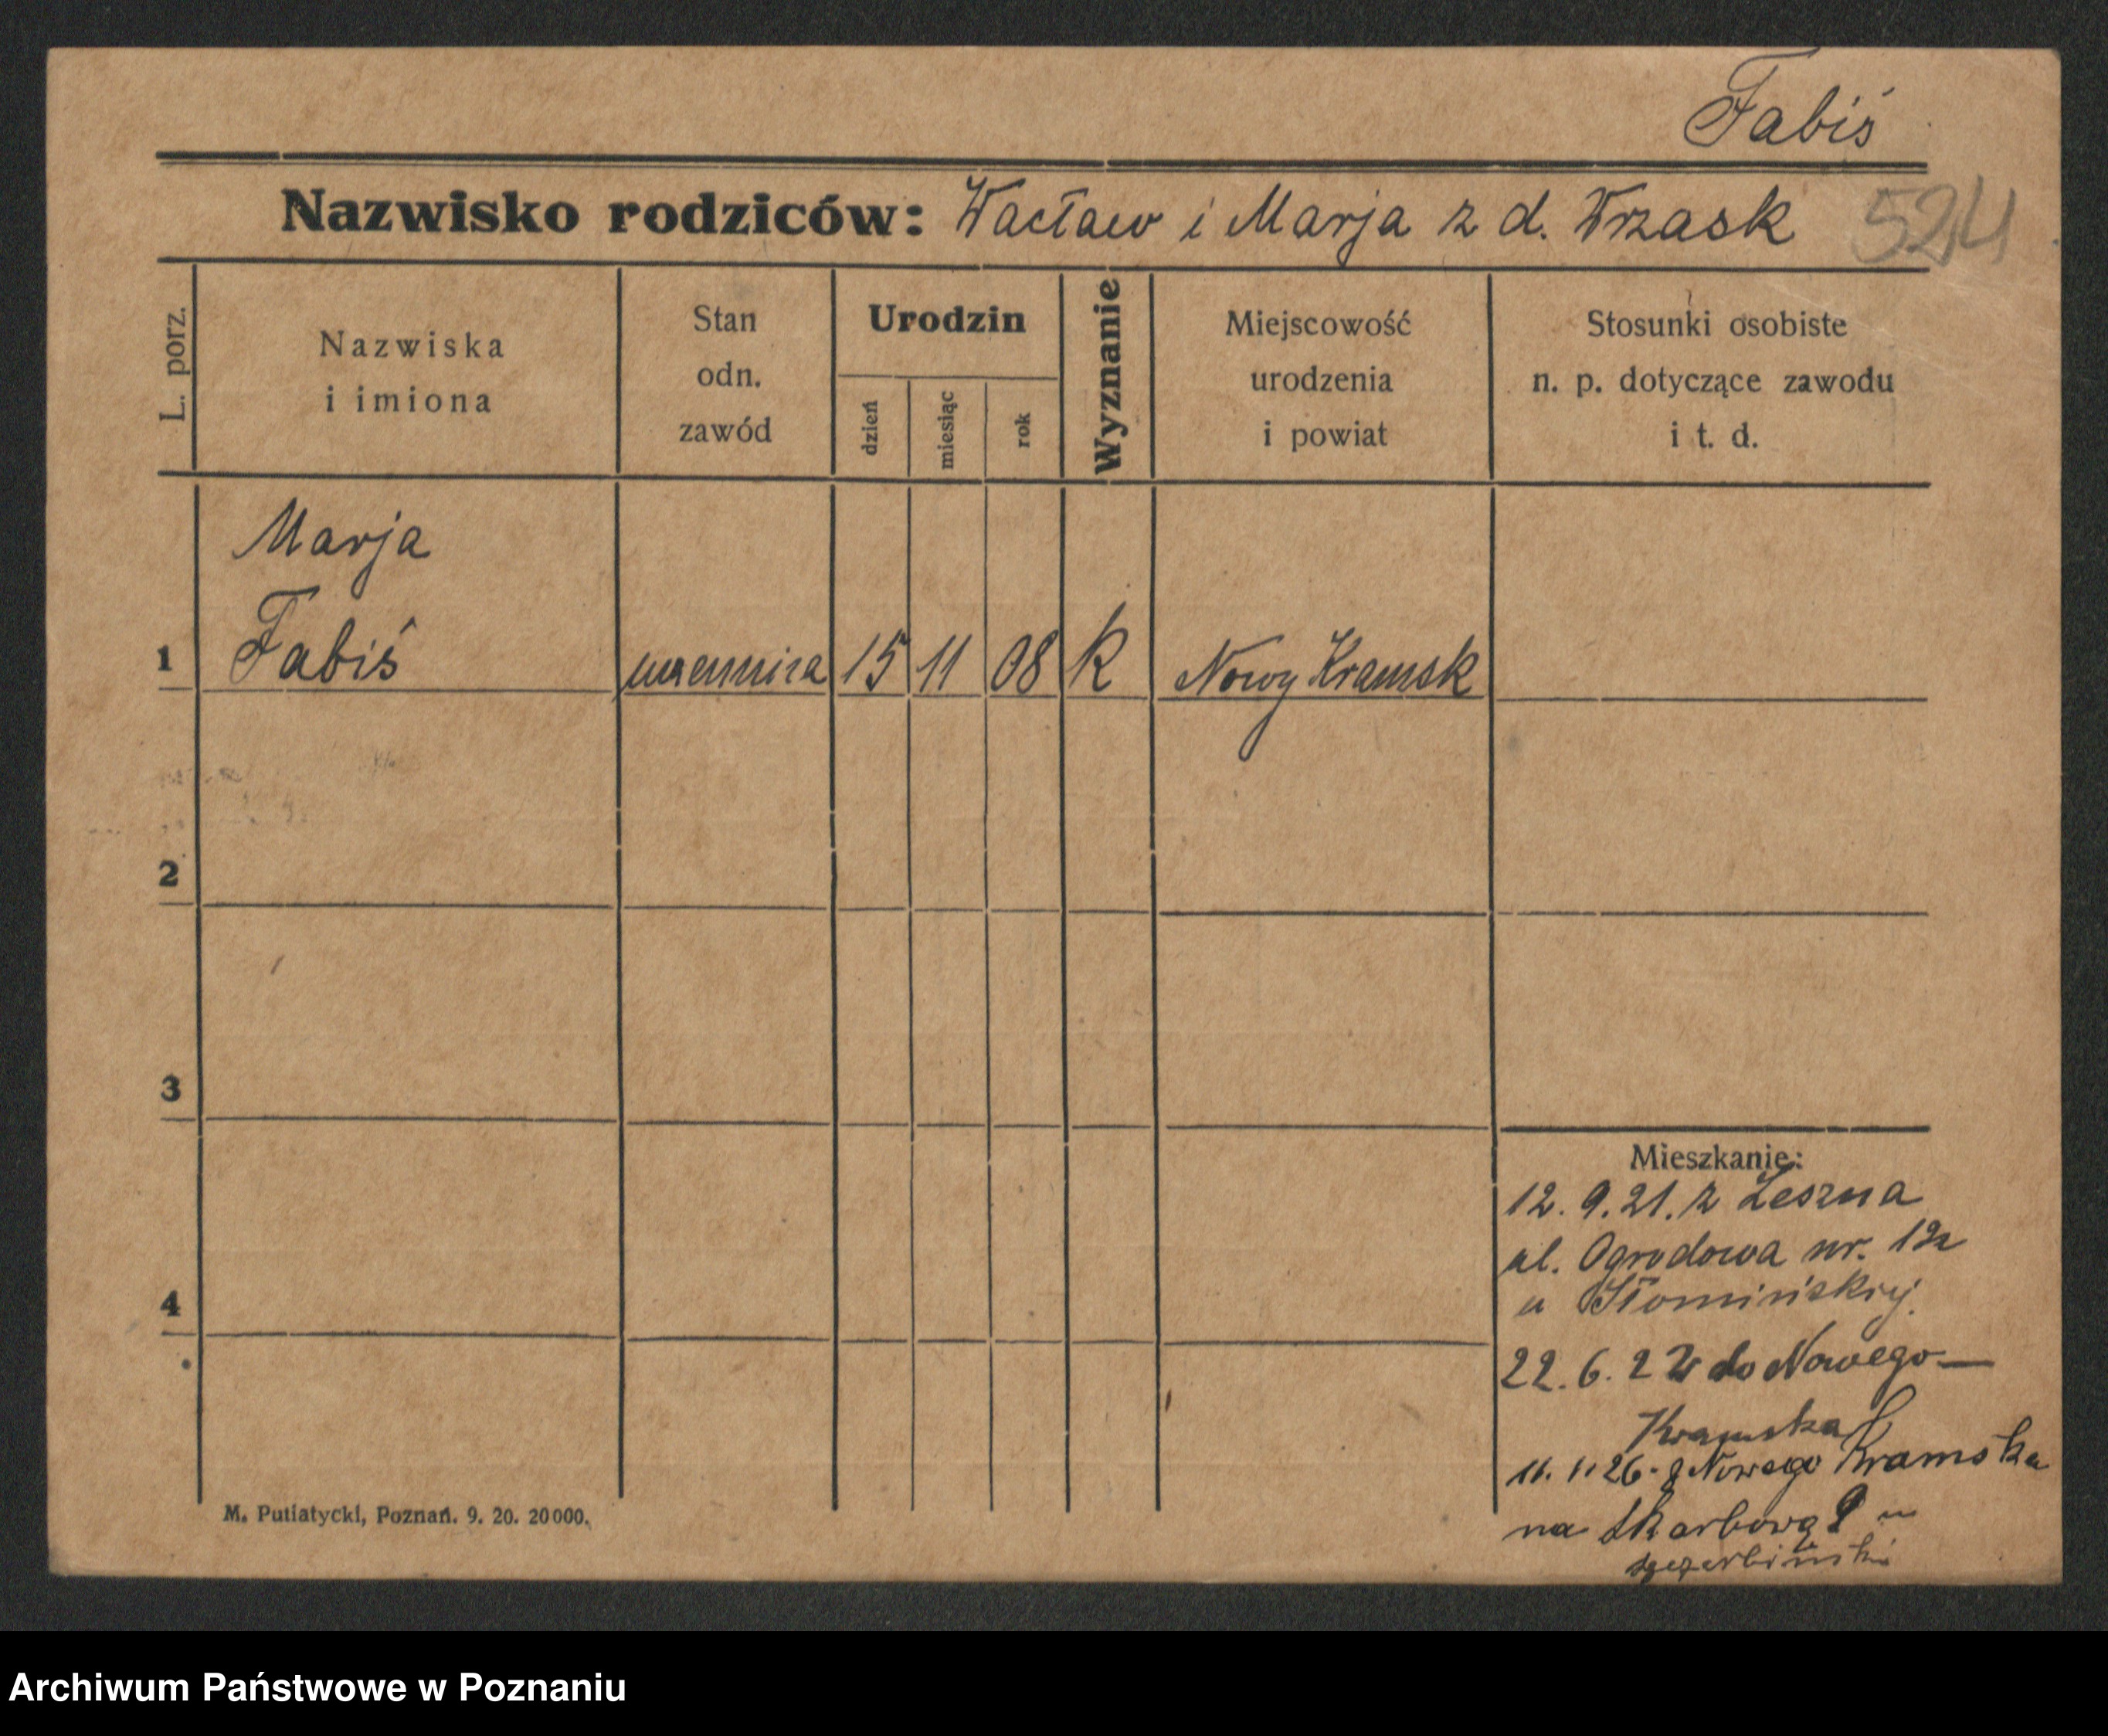 Fabiś
Nazwisko rodziców: Wacław i Marja z d. Wrzask 524
L. porz.
Nazwiska
i imiona
Stan
odn.
zawód
Urodzin
dzień
miesiąc
rok
Wyznanie
Miejscowość
urodzenia
i powiat
Stosunki osobiste
n. p. dotyczące zawodu
i t. d.
Marja
1 Fabiś uczennica 15 11 08 K Nowy Kramsk
2
3
4
Mieszkanie:
12. 9. 21. z Leszna
ul. Ogrodowa nr.
u Słomińskiej
22. 6. 22 do Nowego
Kramska
11. 11 26. z Nowego Kramska
na Skarbową
M. Putiatycki, Poznań. 9. 20. 20 000.
Archiwum Państwowe w Poznaniu